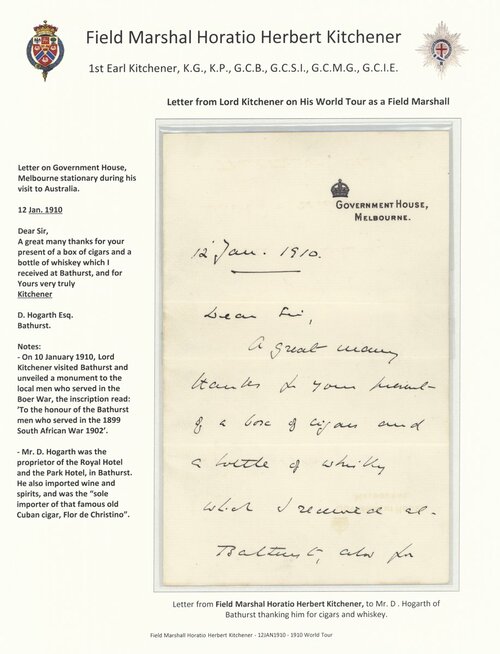 Field Marshal Horatio Herbert Kitchener
1st Earl Kitchener, K.G., K.P., G.C.B., G.C.S.I., G.C.M.G., G.C.I.E.
Letter from Lord Kitchener on His World Tour as a Field Marshall
Letter on Government House,
Melbourne stationary during his
visit to Australia.
12 Jan. 1910
Dear Sir,
A great many thanks for your
present of a box of cigars and a
bottle of whiskey which I
received at Bathurst, and for
Yours very truly
Kitchener
D. Hogarth Esq.
Bathurst.
Notes:
- On 10 January 1910, Lord
Kitchener visited Bathurst and
unveiled a monument to the
local men who served in the
Boer War, the inscription read:
'To the honour of the Bathurst
men who served in the 1899
South African War 1902'.
- Mr. D. Hogarth was the
proprietor of the Royal Hotel
and the Park Hotel, in Bathurst.
He also imported wine and
spirits, and was the "sole
importer of that famous old
Cuban cigar, Flor de Christino".
Government House,
Melbourne.
12 Jan. 1910.
Dear Sir,
A great many
thanks for your present
of a box of cigars and
a bottle of whisky
which I received at
Bathurst, also for
Letter from Field Marshal Horatio Herbert Kitchener, to Mr. D . Hogarth of
Bathurst thanking him for cigars and whiskey.
Field Marshall Horatio Herbert Kitchener - 12JAN1910 - 1910 World Tour